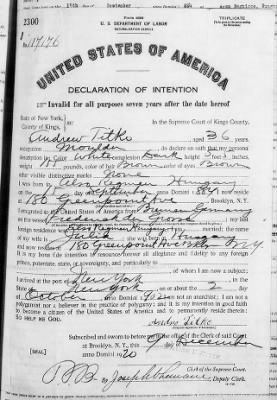 15th day of September
2300
Form 2203
U. S. DEPARTMENT OF LABOR
NATURALIZATION SERVICE
TRIPLICATE
No. 117176
UNITED STATES OF AMERICA
DECLARATION OF INTENTION
Invalid for all purposes seven years after the date hereof
State of New York,
County of Kings,
In the Supreme Court of Kings County.
I, Andrew Titko aged 36 years,
occupation Moulder, do declare on oath that my personal
description is: Color White, complexion Dark, height 5 feet inches,
weight pounds, color of hair Brown, color of eyes Brown
other visible distinctive marks None
I was born in Hungary
on the day of September, anno Domini 1884; I now reside
at 180 Greenpoint Ave Brooklyn, N.Y.
I emigrated to United States of America from Bremen Germany
on the vessel Frederick der Grosse; my last
foreign residence was Hungary; I am married; the name
of my wife is Julia; she was born at Hungary
and now resides at 180 Greenpoint Ave Bklyn N.Y.
It is my bona fide intention to renounce forever all allegiance and fidelity to any foreign
prince, potentate, state, or sovereignty, and particularly to
of whom I am now a subject;
I arrived at the port of New York, in the
State of New York, on or about the 2 day
of October, anno Domini 1; I am not an anarchist; I am not a
polygamist nor a believer in the practice of polygamy; and it is my intention in good faith
to become a citizen of the United States of America and to permanently reside therein:
SO HELP ME GOD.
Subscribed and sworn to before me in the office of the Clerk of said Court
at Brooklyn, N.Y., this 7 day of December
[SEAL] anno Domini 1920
Clerk of the Supreme Court.
By Deputy Clerk.